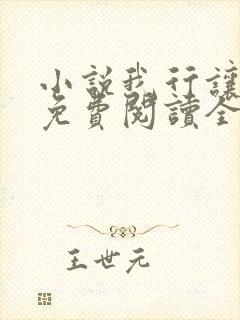 小說我行讓
免費閱讀全
王世元